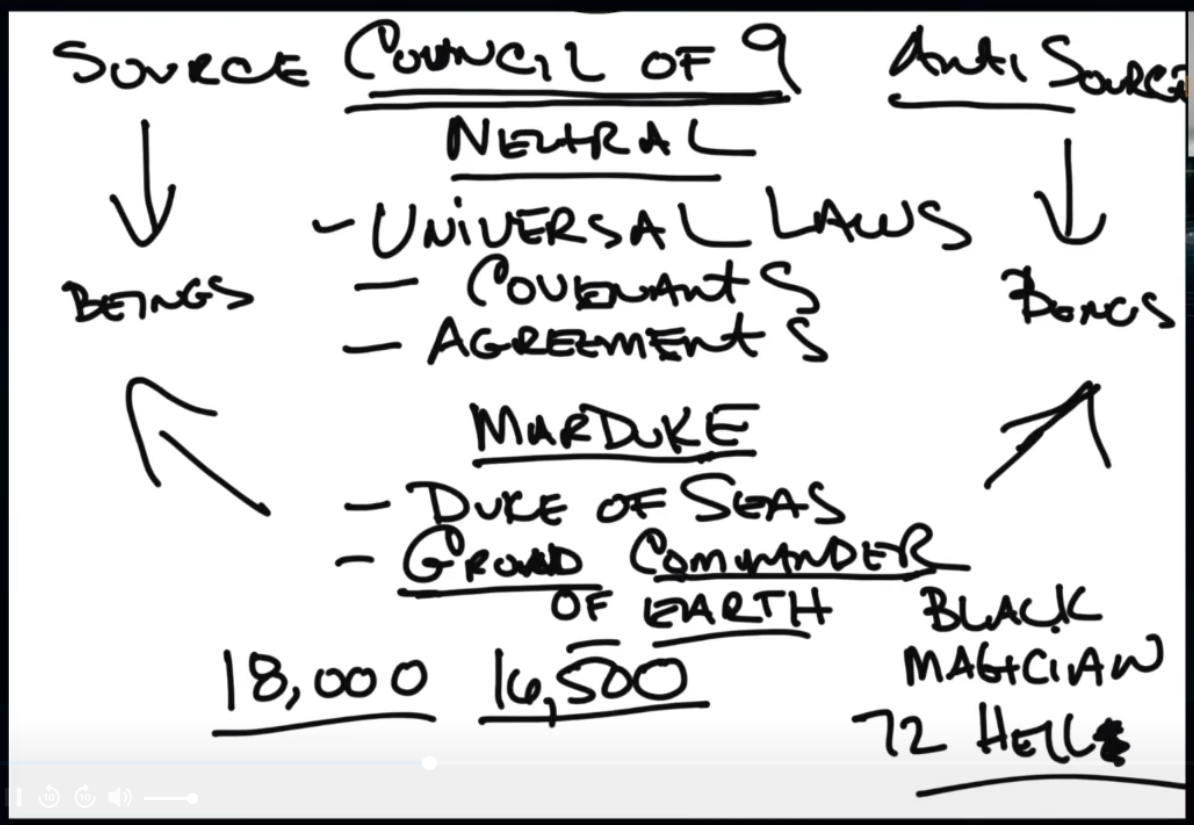 SOURCE COUNCIL OF 9 Anti SOURCE
NEUTRAL
- UNIVERSAL LAWS
BEINGS - COVENANTS BEINGS
- AGREEMENTS
MARDUKE
- DUKE OF SEAS
- GROUND COMMANDER
OF EARTH BLACK
MAGICIAN
18,000 16,500
72 HELLS
10 10